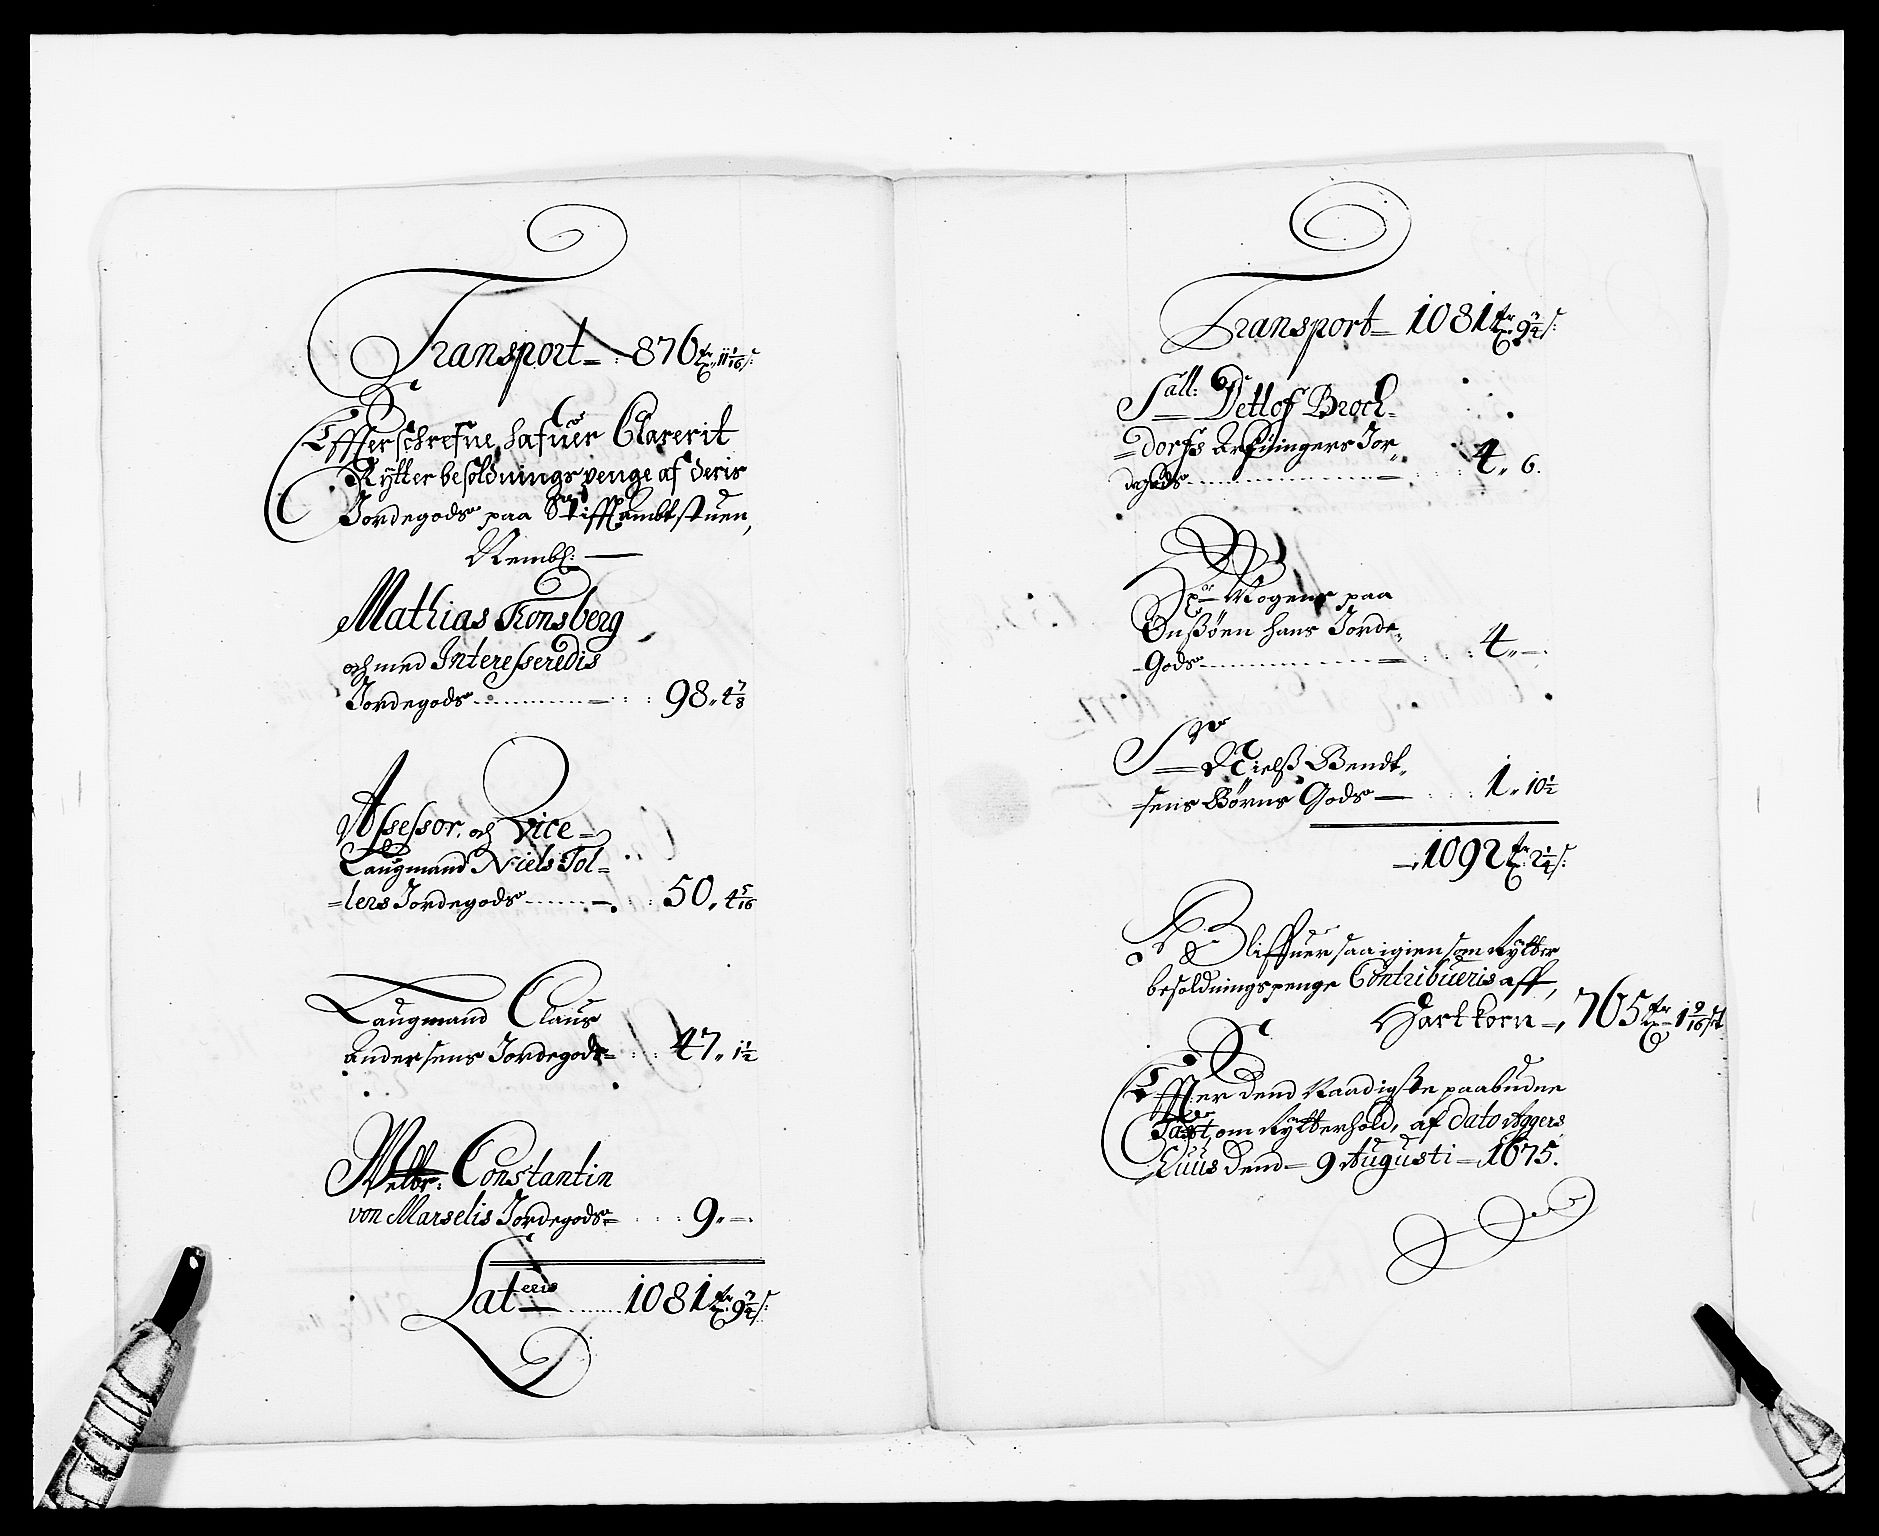 Transport = : 876 tr 11 1/16 s:
Effterschrefne hafuer Clarerit
Rytter besoldnings penge af deris
Jordegods paa Stifftambtstuen,
Nembl: —
Mathias Tonsberg
och med Interesseredis
Jordegods ........ — : : 98„ 4 7/8
Assessor. och Vice =
Laugmand Niels Tol=
=lers Jordegods ........ — . : 50„ 4 5/16
Laugmand Claus
Andersens Jordegods= . . : . 47„ 1 1/2
Welbr: Constantin
von Marselis Jordegods= . . . : 9„ —.
Lateris ........ 1081 tr 9 3/4 s:
Transport = 1081 tr 9 3/4 s:
Sall: Detlof Broch=
=dorfs Arfuingers Jor„
degods ........ — . . . : 4„ 6.
Hr Mogens paa
hans Jorde„
-Gods ........ = : . . : 4„ —.
Sr Nielß Bendt„
sens Børns Gods — . . . : 1„ 10 1/2
—. 1092 tr 2 1/4 s:
Bliffuer saa igien som Rytter
besoldnings penge Contribueris aff,
Hartkorn —, 705 tr 1 9/16 s
Effter dend Naadigste paabudne
Taxt, om Rytterhold, af dato Aggers
Huus dend = 9 Augusti = 1675.